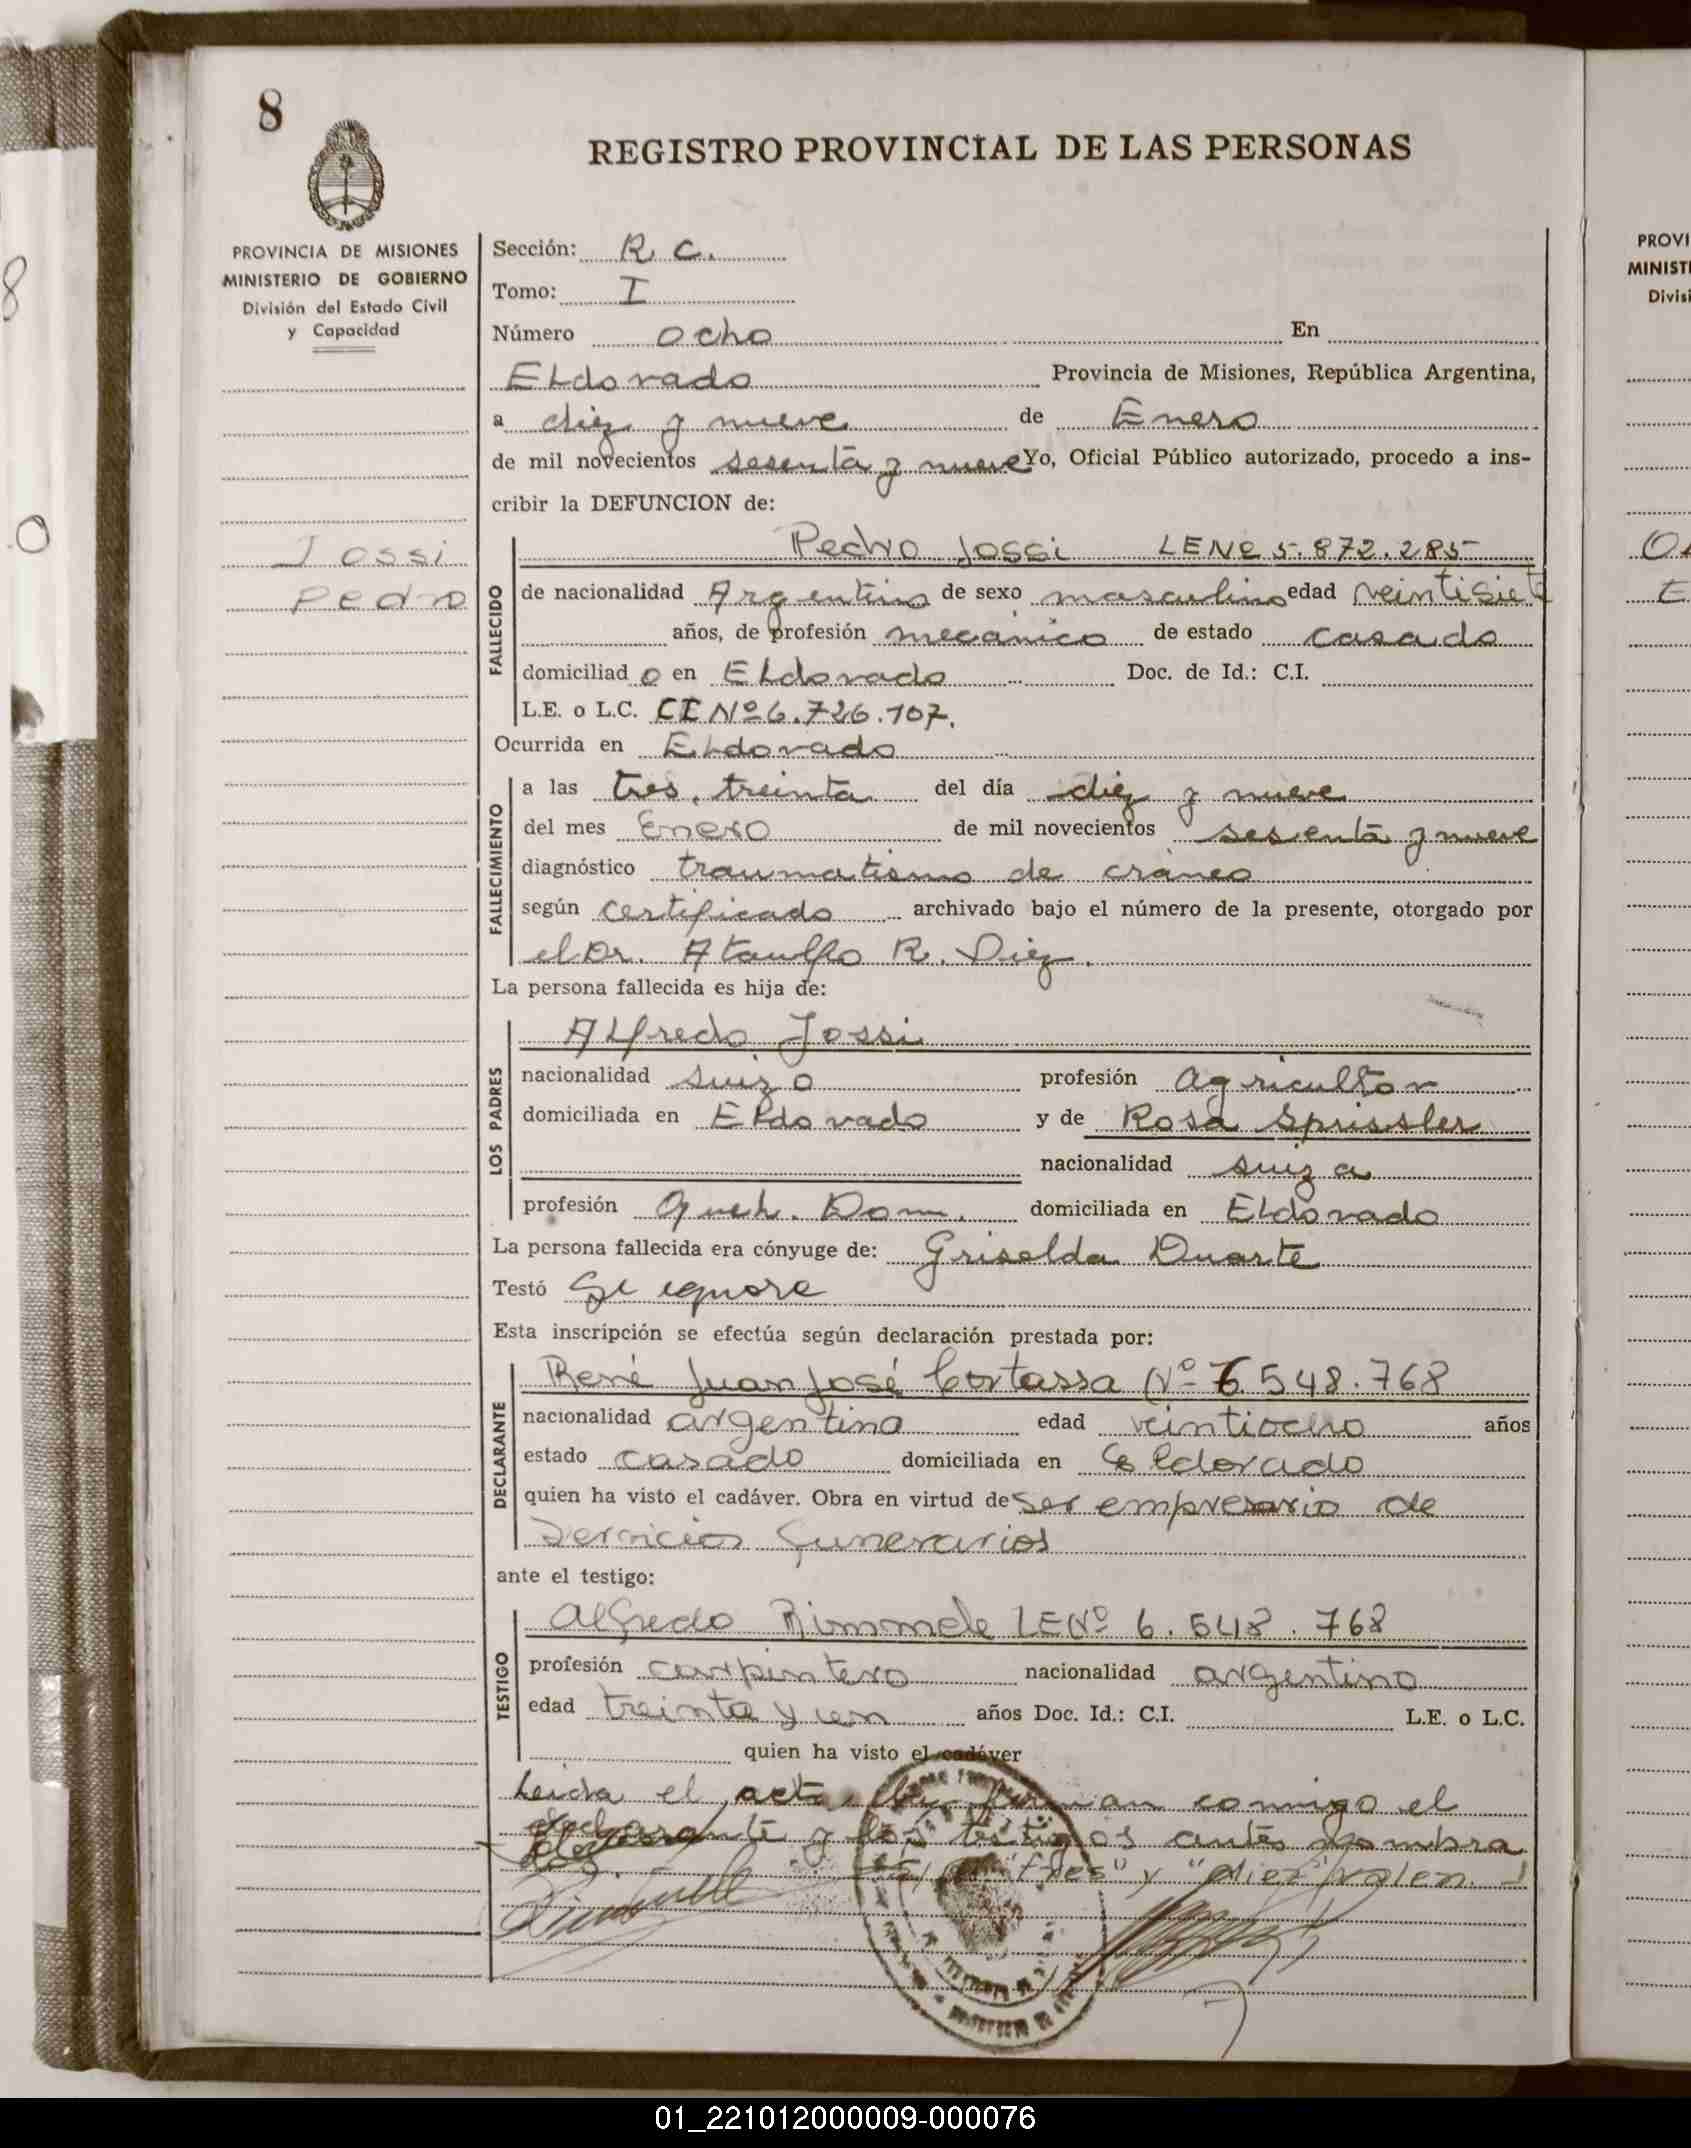 8
REGISTRO PROVINCIAL DE LAS PERSONAS
PROVINCIA DE MISIONES
MINISTERIO DE GOBIERNO
División del Estado Civil
y Capacidad
Jossi
Pedro
Sección: R. C.
Tomo: I
Número ocho En
Eldorado Provincia de Misiones, República Argentina,
a diez y nueve de Enero
de mil novecientos sesenta y nueve Yo, Oficial Público autorizado, procedo a ins-
cribir la DEFUNCION de:
FALLECIDO
Pedro Jossi LENº 5.872.285
de nacionalidad Argentino de sexo masculino edad veintisiete
años, de profesión mecánico de estado casado
domiciliado en Eldorado Doc. de Id.: C.I.
L.E. o L.C. CI Nº 6.726.107.
Ocurrida en Eldorado
FALLECIMIENTO
a las tres, treinta del día diez y nueve
del mes Enero de mil novecientos sesenta y nueve
diagnóstico traumatismo de cráneo
según certificado archivado bajo el número de la presente, otorgado por
el Dr. Ataulfo R. Diez.
La persona fallecida es hija de:
LOS PADRES
Alfredo Jossi
nacionalidad suizo profesión agricultor
domiciliada en Eldorado y de Rosa Sprissler
nacionalidad suiza
profesión Queh. Dom. domiciliada en Eldorado
La persona fallecida era cónyuge de: Griselda Duarte
Testó Se ignora
Esta inscripción se efectúa según declaración prestada por:
DECLARANTE
René Juan José Cortassa Nº 6.548.768
nacionalidad argentino edad veintiocho años
estado casado domiciliada en Eldorado
quien ha visto el cadáver. Obra en virtud de ser empresario de
Servicios Funerarios
ante el testigo:
TESTIGO
Alfredo Rimmele LENº 6.548.768
profesión carpintero nacionalidad argentino
edad treinta y un años Doc. Id.: C.I. L.E. o L.C.
quien ha visto el cadáver
Leida el acta la firman conmigo el
declarante y los testigos antes nombra
dos. "tres" y "diez" valen.
PROVI
MINIST
Divisi
01_221012000009-000076